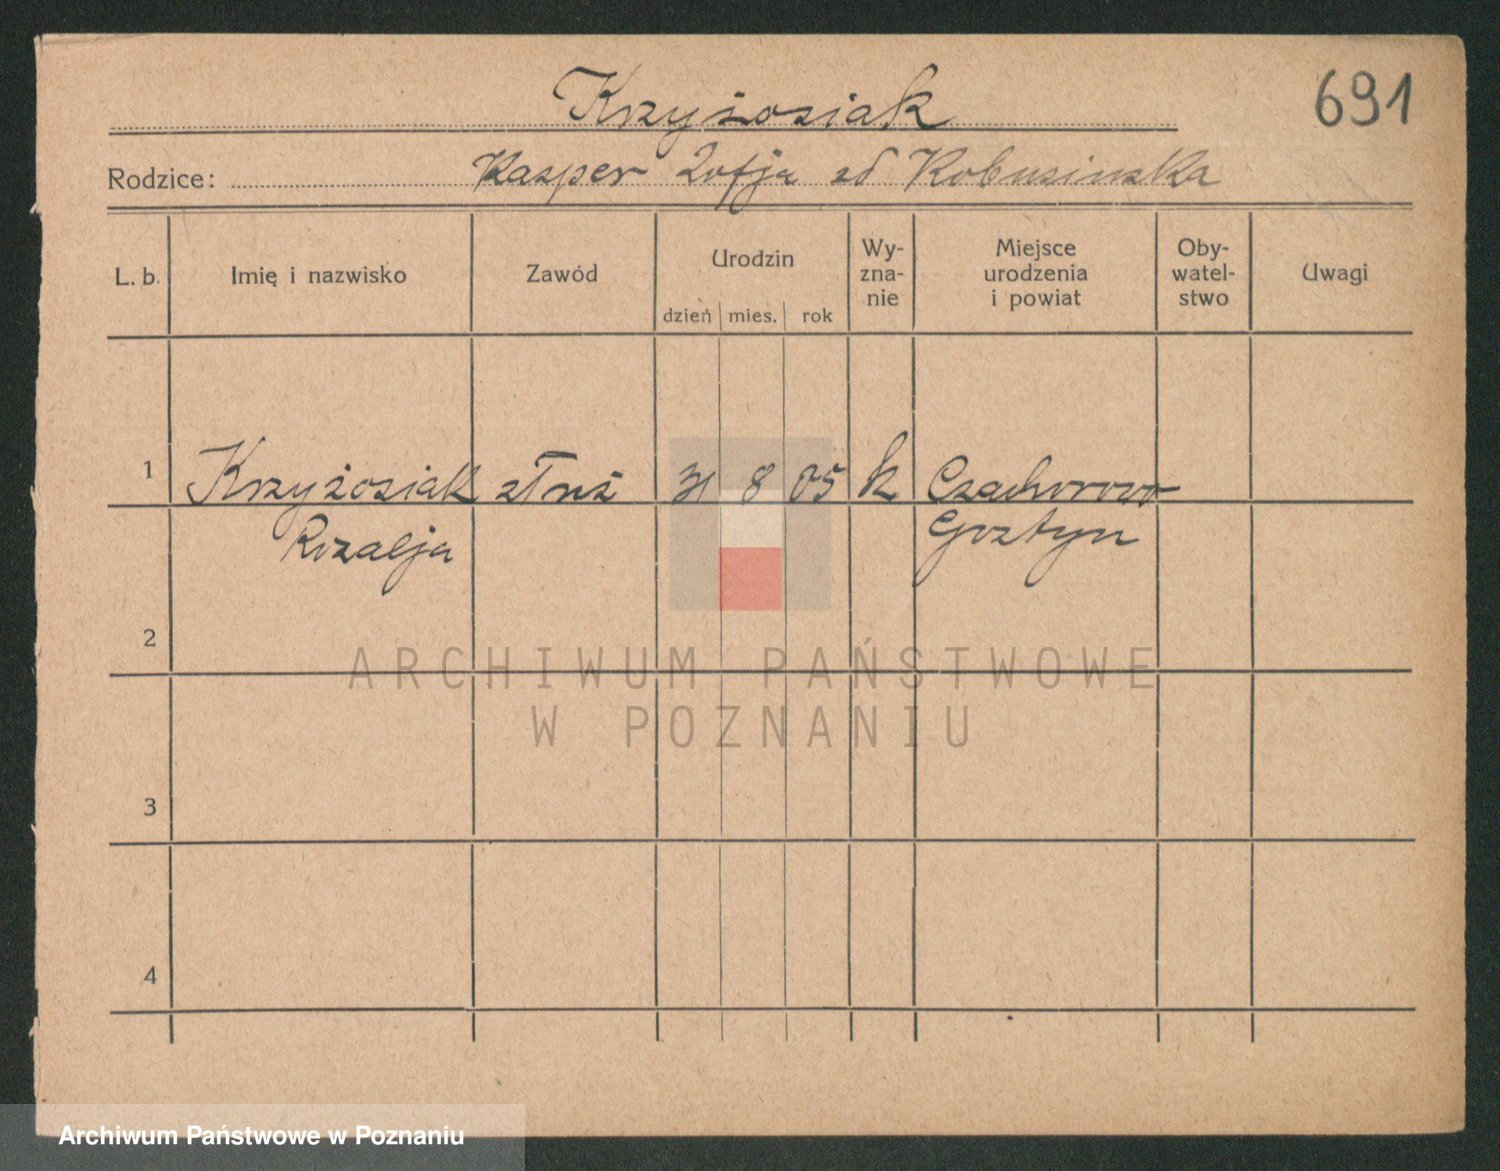 Krzyżosiak
691
Rodzice: Kasper Zofja zd Kobusinska
L. b.
Imię i nazwisko
Zawód
Urodzin
dzień mies. rok
Wy-
zna-
nie
Miejsce
urodzenia
i powiat
Oby-
watel-
stwo
Uwagi
1 Krzyżosiak służ 31 8 05 k Czachorowo
Rozalja Gostyn
2
ARCHIWUM PAŃSTWOWE
W POZNANIU
3
4
Archiwum Państwowe w Poznaniu